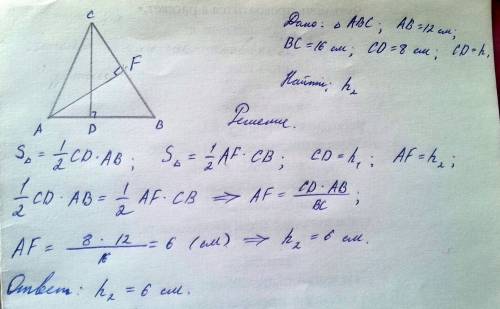 Дано: △ ABC; AB=12 см;
BC=16 см; CD=8 см; CD=h₁
Найти: h₂
Решение.
C
F
A
D
B
S△ = 1/2 CD·AB; S△ = 1/2 AF·CB; CD=h₁; AF=h₂;
1/2 CD·AB = 1/2 AF·CB ⟹ AF = CD·AB/BC;
AF = 8·12/16 = 6 (см) ⟹ h₂ = 6 см.
Ответ: h₂ = 6 см.